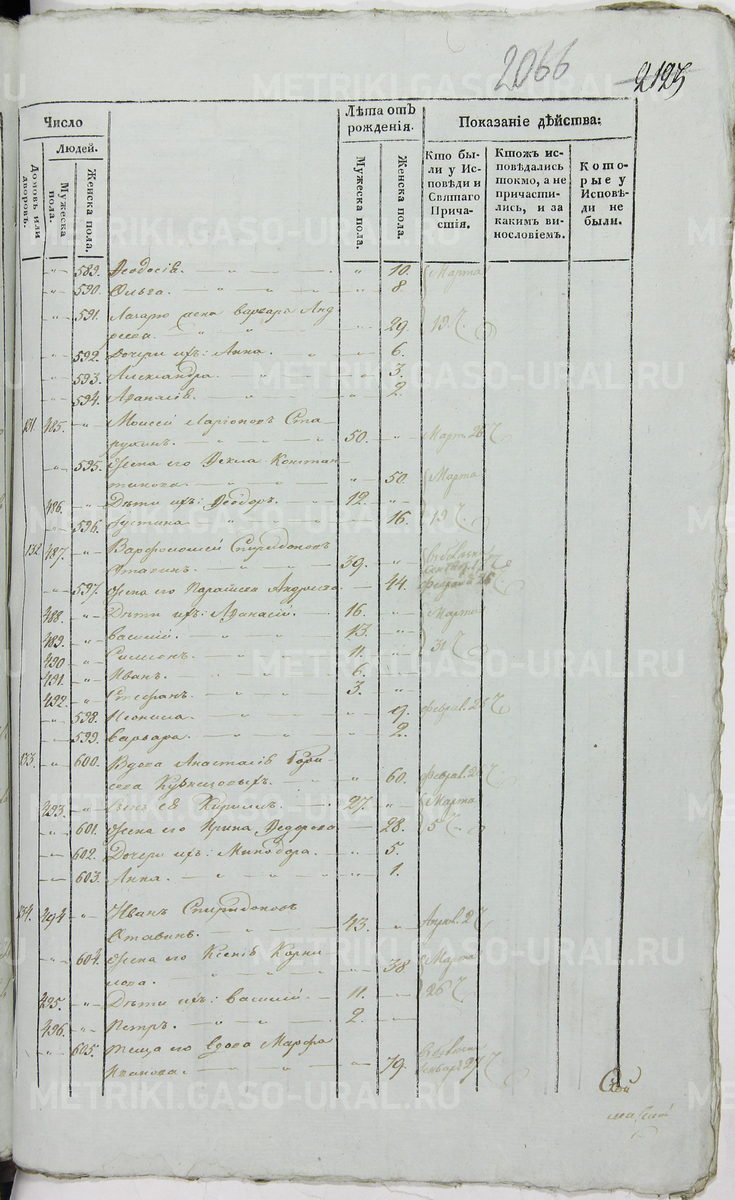 2066
2125
Число
Людей.
Домовъ или дворовъ.
Мужеска пола.
Женска пола.
Лѣта отъ рожденія.
Мужеска пола.
Женска пола.
Показаніе дѣйства:
Кто были у Исповѣди и Святаго Причастія.
Ктожъ исповѣдались токмо, а не причастились, и за какимъ винословіемъ.
Которые у Исповѣди не были.
589. Ѳеодосія. 10. Марта
590. Ольга. 8
591. Лазарю жена Варвара Анд
реева. 29. 19.
592. Дочери ихъ: Анна. 6.
593. Александра. 3.
594. Аѳанасія. 2.
131. 485. Моисей Ларіоновъ Ста-
50. Март. 26
595. Жена его Ѳекла Констан
тинова. 50. Марта
486. Дѣти ихъ: Ѳеодоръ. 12.
596. Іустина. 16. 19.
132. 487. Варфоломей Спиридоновъ
39.
597. Жена его Параскева Андреева 44. Феврал. 26
488. Дѣти ихъ: Аѳанасій. 16. Марта
489. Василій. 13.
490. Симеонъ. 11. 31
491. Иванъ. 6.
492. Стефанъ. 3.
598. Неонила. 19. Феврал. 26
599. Варвара. 2.
133. 600. Вдова Анастасія
Кузнецовыхъ. 60. Феврал. 26
493. Сынъ ея Кириллъ. 27. Марта
601. Жена его Ирина Ѳедорова 28. 5
602. Дочери ихъ: Минодора. 5.
603. Анна. 1.
134. 494. Иванъ Спиридоновъ
43. Апрѣл. 2
604. Жена его Ксенія Корни
лова. 38 Марта
495. Дѣти ихъ: Василій. 11. 26
496. Петръ. 2.
605. Теща его вдова Марфа
Иванова. 79. 27
METRIKI.GASO-URAL.RU